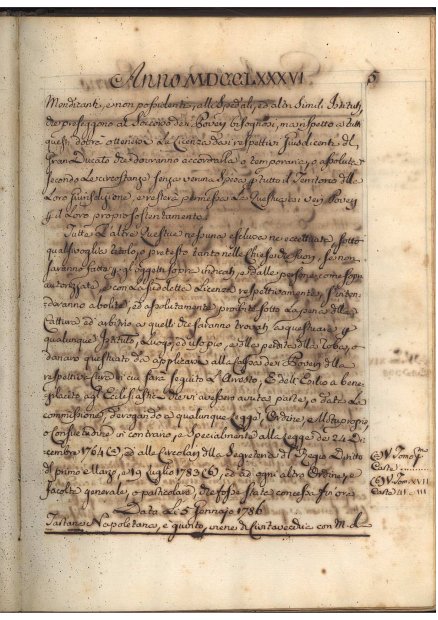 Anno MDCCLXXXVI
5
Mendicanti, e non possidenti, alli Spedali, ed altri Simili Istituti,
che proseggono al Soccorso dei Poveri bisognosi, ma rispetto a tutti
questi dovrà ottenersi la Licenza dai respettivi Iusdicenti del
Gran Ducato che dovranno accordarla o temporaria, o assoluta
secondo le circostanze senza veruna Spesa p tutto il Territorio della
Loro Giurisdizione, e resterà permessa la Questua ai veri Poveri
p il Loro proprio sostentamento.
Tutte l'altre Questue nessuna esclusa, ne eccettuata, sotto
qualsivoglia titolo, e pretesto tanto nelle Chiese che fuori, se non
saranno fatte p gl'oggetti sopra indicati, e dalle persone come sopra
autorizzate, e con la suddetta Licenza respettivamente, s'inten-
deranno abolite, ed assolutamente proibite sotto la pena della
Cattura ad arbitrio a quelli che saranno trovati a questuare p
qualunque Istituto, Luogo, ed uso pio, e della perdita della roba, o
danaro questuato da applicarsi alla Cassa dei Poveri della
respettiva Cura in cui sarà seguito l'Arresto, E dell'Esilio a bene-
placito agl'Ecclesiastici che vi avessero avuta parte, o data la
commissione, derogando a qualunque Legge, Ordine, e Motuproprio,
o Consuetudine in contrario, e specialmente alla Legge de 24 Di-
cembre 1764 ed alle Circolari della Segreteria del Regio Diritto
del primo Marzo, e 19 Luglio 1783 ed ad ogni altro Ordine, e
facoltà generale, o particolare che fosse stata concessa fin ora
Data Li 5 Gennajo 1786
Tartane Napoletane, e quinto, viene di Civitavecchia con
V Tomo
Carte
V Tom XVII
Carte 41